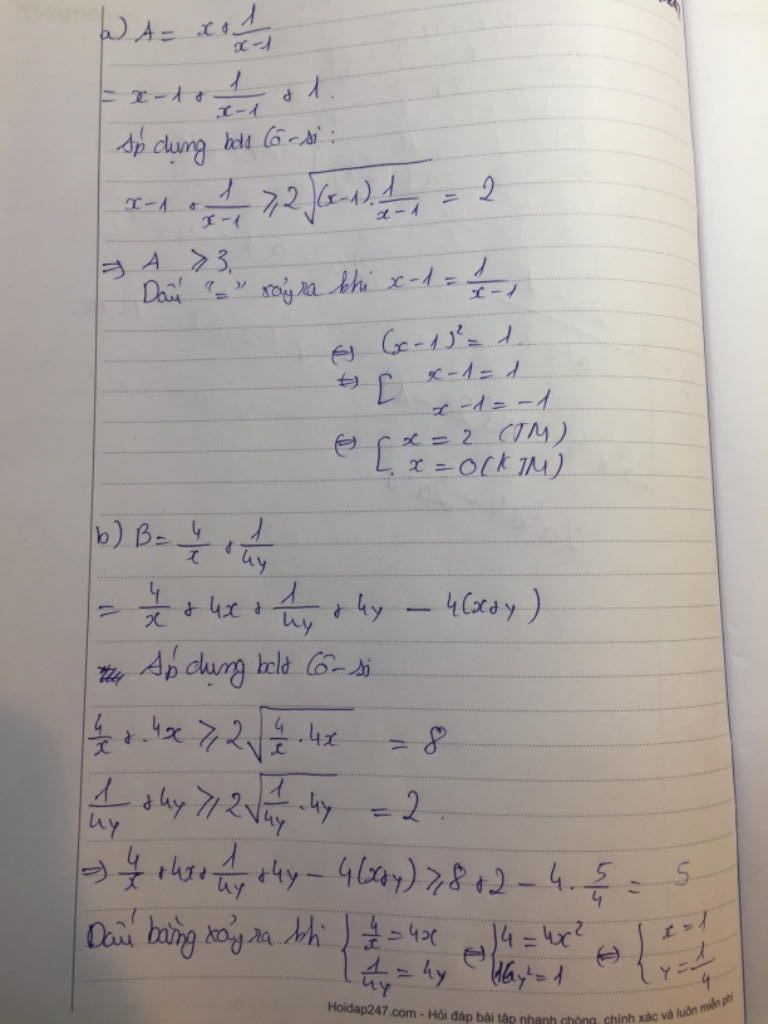 a) A = x + 1/(x-1)
= x-1 + 1/(x-1) + 1.
Áp dụng bđt Cô-si:
x-1 + 1/(x-1) ≥ 2√((x-1).1/(x-1)) = 2
⇒ A ≥ 3.
Dấu "=" xảy ra khi x-1 = 1/(x-1)
⇔ (x-1)² = 1.
⇔ [ x-1 = 1
x-1 = -1
⇔ [ x = 2 (TM)
x = 0 (KTM)
b) B = 4/x + 1/4y
= 4/x + 4x + 1/4y + 4y - 4(x+y)
Áp dụng bđt Cô-si
4/x + 4x ≥ 2√(4/x . 4x) = 8
1/4y + 4y ≥ 2√(1/4y . 4y) = 2.
⇒ 4/x + 4x + 1/4y + 4y - 4(x+y) ≥ 8 + 2 - 4. 5/4 = 5
Dấu bằng xảy ra khi { 4/x = 4x ⇔ { 4 = 4x² ⇔ { x = 1
1/4y = 4y 16y² = 1 y = 1/4
Hoidap247.com - Hỏi đáp bài tập nhanh chóng, chính xác và luôn miễn phí